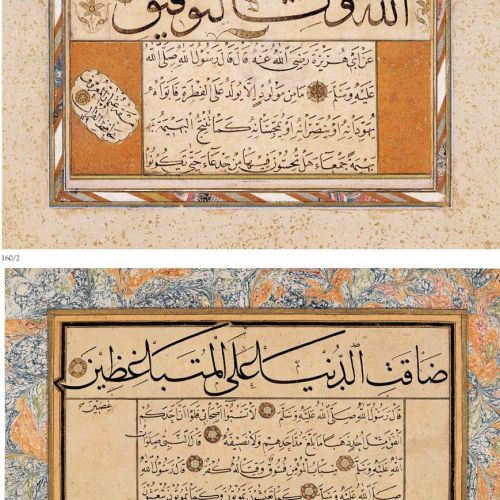 الله وقت التوفيق
عن أبي هريرة رضي الله عنه قال قال رسول الله صلى الله
عليه وسلم ما من مولود إلا يولد على الفطرة فأبواه
يهودانه أو ينصرانه أو يمجسانه كما تنتج البهيمة
بهيمة جمعاء هل تحسون فيها من جدعاء حتى تكونوا
160/2
ضاقت الدنيا على المتباغضين
قال رسول الله صلى الله عليه وسلم لا تسبوا أصحابي فلو أن أحدكم
أنفق مثل أحد ذهبا ما بلغ مد أحدهم ولا نصيفه قال النبي صلى الله
عليه وسلم سباب المؤمن فسوق وقتاله كفر قال رسول الله